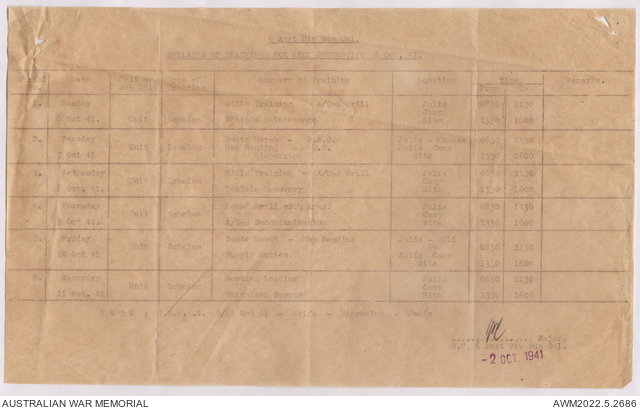 Aust Div Sup Col.
SYLLABUS OF TRAINING FOR WEEK COMMENCING 6 Oct. 41.
Date Unit or Sub Unit Type of Training Summary of Training Location. Time. Remarks.
From To
1. Monday Rifle Training - A/Gas Drill Julis 0830 1130
Unit Echelon Camp
6 Oct 41. Vehicle Maintenance Site 1330 1600
2. Tuesday Route March - Julis - 0830 1130
Unit Echelon Map Reading Julis Camp
7 Oct 41. Site 1330 1600
3. Wednesday Rifle Training - A/Gas Drill Julis 0830 1130
Unit Echelon Camp
8 Oct 41. Vehicle Recovery Site 1330 1600
4. Thursday Squad Drill with arms. Julis 0830 1130
Unit Echelon Camp
9 Oct 41. A/Gas Decontamination Site 1330 1600
5. Friday Route March - Map Reading Julis - Hill 0830 1130
Unit Echelon 69
10 Oct 41 Supply Duties. Julis - Camp
Site 1330 1600
6. Saturday Section Leading Julis 0830 1130
Unit Echelon Camp
11 Oct. 41. Organised Sports Site 1330 1600
NOTE: /11 Oct 41 - Haifa - - Jenin
Major.
O.C. Aust Div Sup Col.
- 2 OCT. 1941
AUSTRALIAN WAR MEMORIAL AWM2022.5.2686